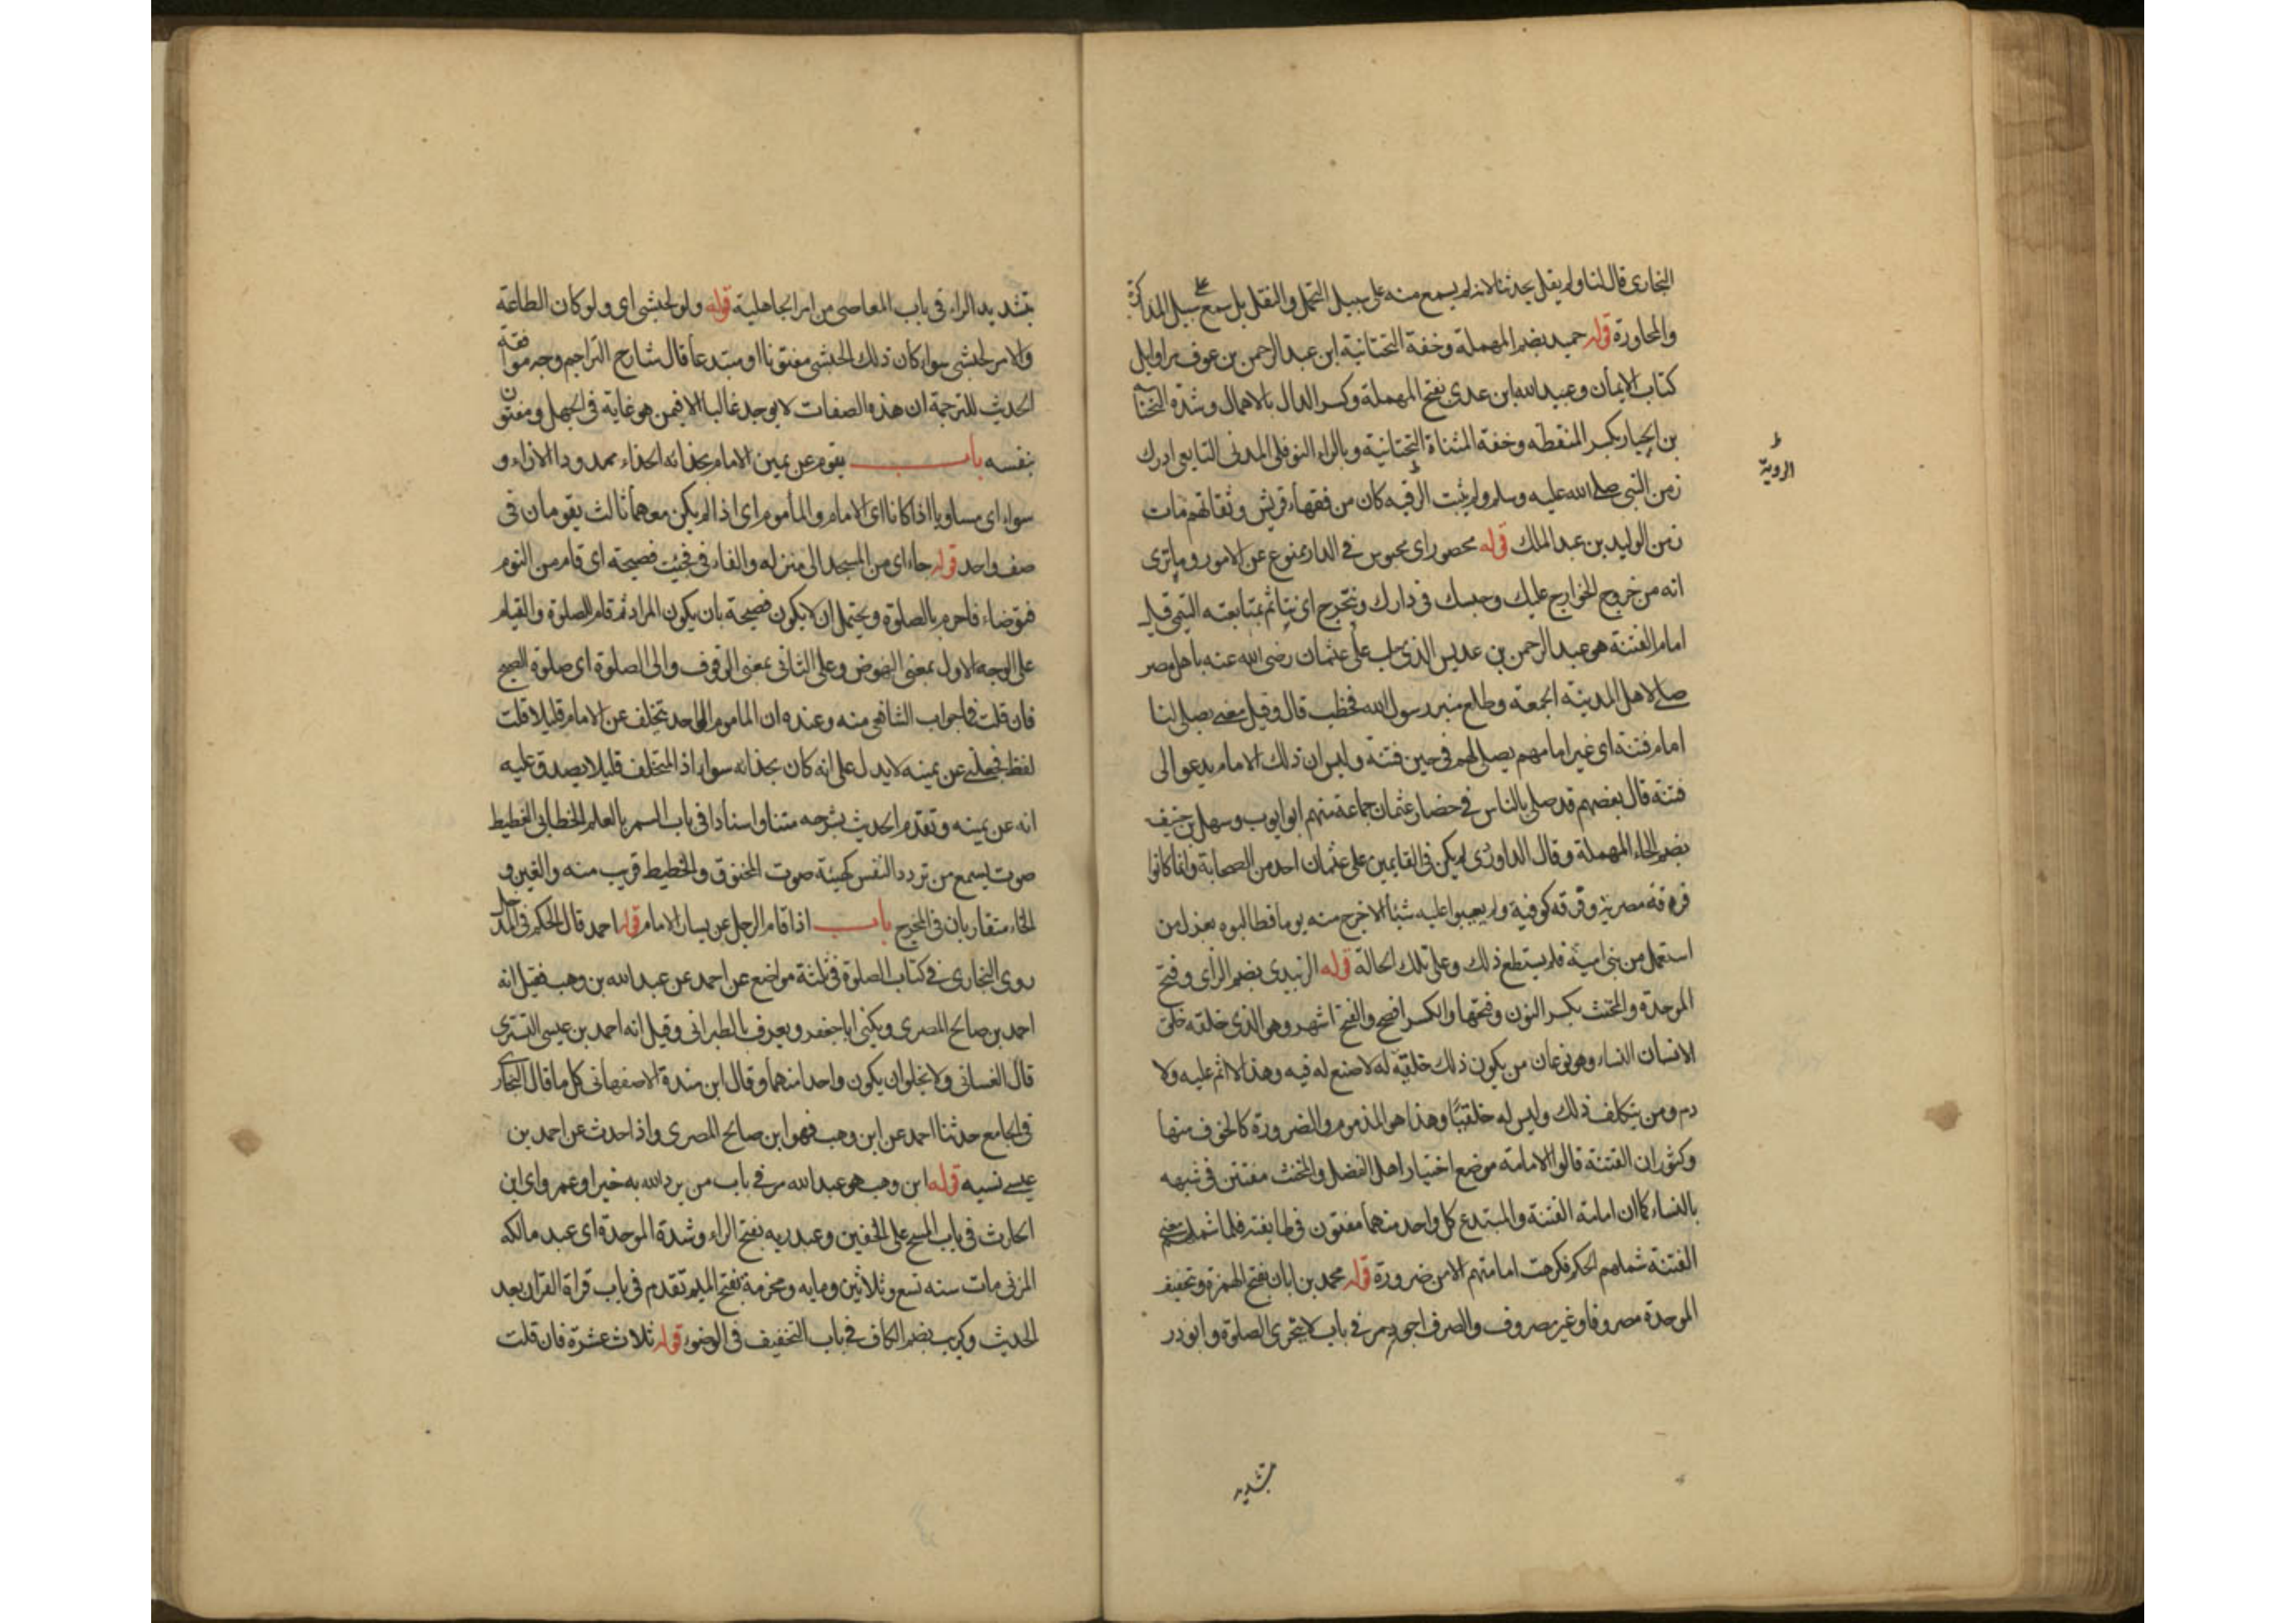 البخارى قال لنا ولم يقل حدثنا لانه لم يسمع منه على سبيل التحمل والنقل بل سمع على سبيل المذاكرة
والمحاورة قوله حميد بضم المهملة وخفة التحتانية ابن عبد الرحمن بن عوف مر اوايل
كتاب الايمان وعبيد الله ابن عدى بفتح المهملة وكسر الدال بالاهمال وشدة التحتانية
بن الخيار بكسر المنقطه وخفة المثناة التحتانية وبالراء النوفلى المدنى التابعى ادرك
زمن النبى صلى الله عليه وسلم ولم يثبت الرقيه كان من فقهاء قريش وثقاتهم مات
الروية
زمن الوليد بن عبد الملك قوله محصور اى محبوس فى الدار ممنوع عن الامور وما ترى
انه من خروج الخوارج عليك وحبسك فى دارك ونتحرج اى نتاثم بمتابعته التيمى قيل
امام الفتنة هو عبد الرحمن بن عديس الذى جلب على عثمان رضى الله عنه باهل مصر
صلى لاهل المدينة الجمعة وطلع منبر رسول الله فخطب قال وقيل معنى يصلى لنا
امام فتنة اى غير امامهم يصلى لهم فى حين فتنة وليس ان ذلك الامام يدعو الى
فتنة قال بعضهم قد صلى بالناس فى حصار عثمان جماعة منهم ابو ايوب وسهل بن حنيف
بضم الحاء المهملة وقال الداودى لم يكن فى القايمين على عثمان احد من الصحابة وانما كانوا
فرقة مصرية وفرقه كوفية ولم يعيبوا عليه شيأ الا خرج منه يوما فطالبوه بعزل من
استعمل من بنى امية فلم يستطع ذلك وعلى تلك الحالة قوله الزبيدى بضم الزاى وفتح
الموحدة والمخنث بكسر النون وفتحها والكسر افصح والفتح اشهر وهو الذى خلقه خلق
الانسان النساء وهو نوعان من يكون ذلك خلقية له لا صنع له فيه وهذا لا اثم عليه ولا
ذم ومن يتكلف ذلك وليس له خلقيًا وهذا هو المذموم والضرورة كالخوف منها
وكثوران الفتنة قالوا الامامة موضع اختيار اهل الفضل والمخنث مفتتن فى شبهه
بالنساء كما ان امامة الفتنة والمبتدع كل واحد منهما مفتون فى طايفته فلما شملت معنى
الفتنة شملهم الحكم فكرهت امامتهم الا من ضرورة قوله محمد بن ابان بفتح الهمزة وتخفيف
الموحدة مصروفا وغير مصروف والصرف اجود مر فى باب لا يتحرى الصلوة وابو ذر
بتشديد
بتشديد الراء فى باب المعاصى من امر الجاهلية قوله ولو لحبشى اى ولو كان الطاعة
والامر لحبشى سواء كان ذلك الحبشى مفتونا او مبتدعا قال شارح التراجم وجه موافقة
الحديث للترجمة ان هذه الصفات لا يوجد غالبا الا فيمن هو غاية فى الجهل ومفتون
بنفسه باب يقوم عن يمين الامام بحذائه الحذاء ممدودا الازاء و
سواء اى مساويا اذا كانا اى الامام والمأموم اى اذا لم يكن معهما ثالث يقومان فى
صف واحد قوله جاء اى من المسجد الى منزله والفاء فى فجئت فصيحة اى قام من النوم
فتوضاء فاحرم بالصلوة ويحتمل ان لا يكون فصيحة بان يكون المراد ثم قام للصلوة والقيام
على الوجه الاول بمعنى النهوض وعلى الثانى بمعنى الوقوف والى الصلوة اى صلوة الصبح
فان قلت فما جواب الشافعى منه وعنده ان الماموم الواحد يتخلف عن الامام قليلا قلت
لفظ فجعلنى عن يمينه لا يدل على انه كان بحذائه سواء اذ المتخلف قليلا يصدق عليه
انه عن يمينه وتقدم الحديث بشرحه متنا واسنادا فى باب السمر بالعلم الخطابى الغطيط
صوت يسمع من تردد النفس كهيئة صوت المخنوق والخطيط قريب منه والغين و
الخاء متقاربان فى المخرج باب اذا قام الرجل عن يسار الامام قوله احمد قال الحكم فى المدخل
روى البخارى فى كتاب الصلوة فى ثلثة مواضع عن احمد عن عبد الله بن وهب فقيل انه
احمد بن صالح المصرى ويكنى ابا جعفر ويعرف بالطبرانى وقيل انه احمد بن عيسى التسترى
قال الغسانى ولا يخلوان يكون واحدا منهما وقال ابن مندة الاصفهانى كل ما قال البخارى
فى الجامع حدثنا احمد عن ابن وهب فهو ابن صالح المصرى واذا حدث عن احمد بن
عيسى نسبه قوله ابن وهب هو عبد الله مر فى باب من يرد الله به خيرا وعمرو اى ابن
الحارث فى باب المسح على الخفين وعبد ربه بفتح الراء وشدة الموحدة اى عبد مالكه
المزنى مات سنه تسع وثلاثين ومايه ومخرمة بفتح الميم تقدم فى باب قراة القران بعد
الحديث وكريب بضم الكاف فى باب التخفيف فى الوضوء قوله ثلاث عشرة فان قلت